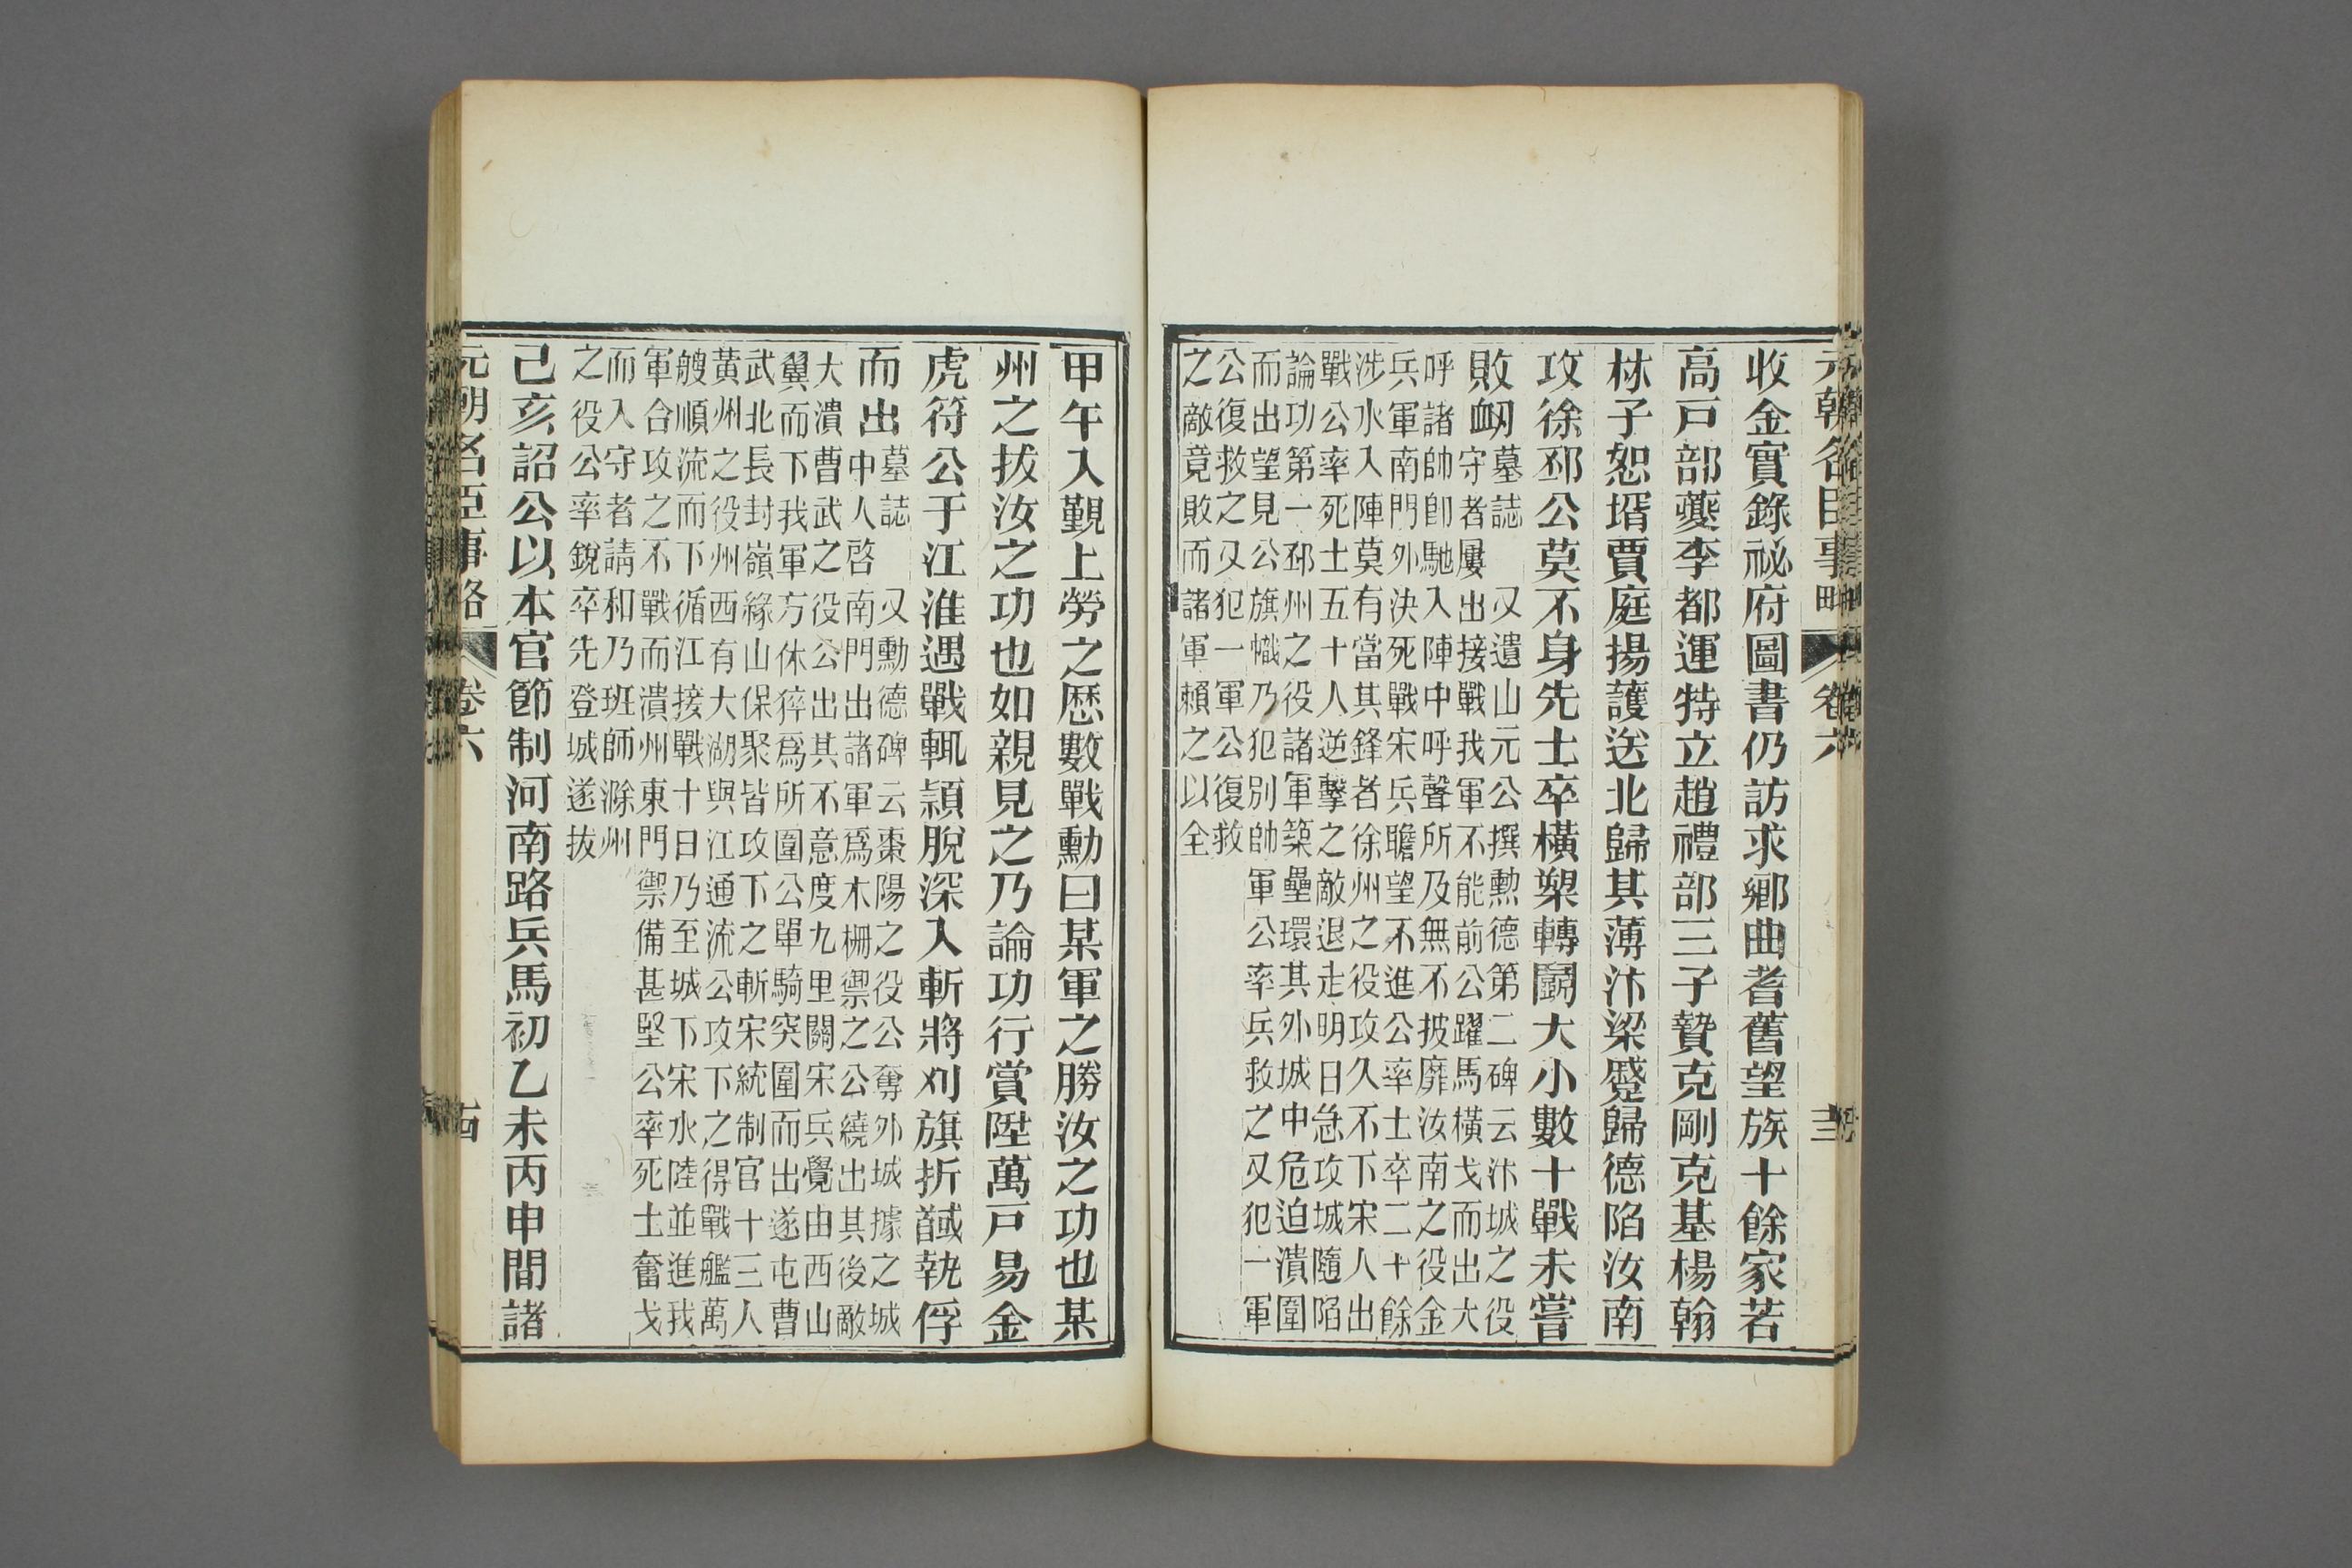 元朝名臣事略 卷六 十三
收金實錄祕府圖書仍訪求鄉曲耆舊望族十餘家若
高戸部夔李都運特立趙禮部三子贄克剛克基楊翰
林子恕壻賈庭揚護送北歸其薄汴梁蹙歸德陷汝南
攻徐邳公莫不身先士卒橫槊轉鬭大小數十戰未嘗
敗衂墓誌 又遺山元公撰勲德第二碑云汴城之役
守者屢出接戰我軍不能前公躍馬橫戈而出大
呼諸帥卽馳入陣中呼聲所及無不披靡汝南之役金
兵軍南門外決死戰宋兵瞻望不進公率士卒二十餘
涉水入陣莫有當其鋒者徐州之役攻久不下宋人出
戰公率死士五十人逆擊之敵退走明日急攻城隨陷
論功第一邳州之役諸軍築壘環其外城中危迫潰圍
而出望見公旗幟乃犯別帥軍公率兵救之又犯一軍
公復救之又犯一軍公復救
之敵竟敗而諸軍賴之以全
甲午入覲上勞之歷數戰勳曰某軍之勝汝之功也某
州之拔汝之功也如親見之乃論功行賞陞萬戸易金
虎符公于江淮遇戰輒頴脫深入斬將刈旗折馘執俘
而出墓誌 又勳德碑云棗陽之役公奪外城據之城
中人啓南門出諸軍爲木柵禦之公繞出其後敵
大潰曹武之役公出其不意度九里關宋兵覺由西山
翼而下我軍方休猝爲所圍公單騎突圍而出遂屯曹
武北長封嶺緣山保聚皆攻下之斬宋統制官十三人
黃州之役州西有大湖與江通流公攻下之得戰艦萬
艘順流而下循江接戰十日乃至城下宋水陸並進我
軍合攻之不戰而潰州東門禦備甚堅公率死士奮戈
而入守者請和乃班師滁州
之役公率銳卒先登城遂拔
己亥詔公以本官節制河南路兵馬初乙未丙申間諸
元朝名臣事略 卷六 十四